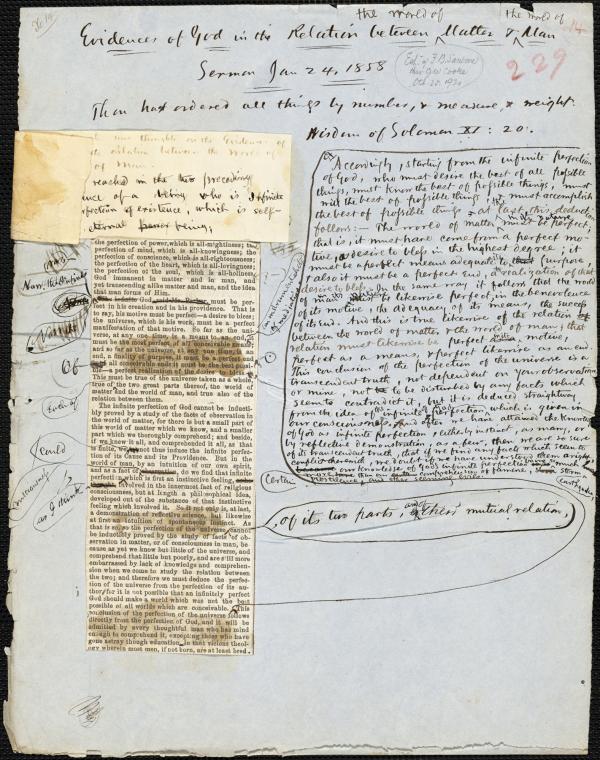 the world of
the world of
Evidences of God in the Relation between Matter & Man
14
Sermon Jan 24, 1858
229
Thou hast ordered all things by number, & measure, & weight.
Wisdom of Solomon XI: 20.
reached in the two preceding
of a being who is Infinite
perfection of existence, which is self-
eternal being,
the perfection of power, which is all-mightiness; the
perfection of mind, which is all-knowingness; the
perfection of conscience, which is all-righteousness;
the perfection of the heart, which is all-lovingness;
the perfection of the soul, which is all-holiness,
God immanent in matter and in man, and
yet transcending alike matter and man, and the idea
that man forms of Him.
Now, the Infinite
God must be per-
fect in his creation and in his providence. That is
to say, his motive must be perfect—a desire to bless;
the universe, which is his work, must be a perfect
manifestation of that motive. So far as the uni-
verse, at any one time, is a means to an end, it
must be the most perfect, of all conceivable means,
and so far as the universe, at any one time, is an
end, a finality, and purpose, it must be a perfect end,
Of
all conceivable ends it must be the best possi-
This must be true of the universe taken as a whole,
true of the two great parts thereof, the world of
matter and the world of man, and true also of the
relation between them.
The infinite perfection of God cannot be induct-
ively proved by a study of the facts of observation in
the world of matter, for there is but a small part of
this world of matter which we know, and a smaller
part which we thoroughly comprehend; and beside,
if we knew it all, and comprehended it all, as that
is finite, we cannot thus induce the infinite perfec-
tion of its Cause and its Providence. But in the
world of man, by an intuition of our own spirit,
and as a fact of do we find that infinite
perfection, which is first an instinctive feeling,
involved in the innermost fact of religious
consciousness, but at length a philosophical idea,
developed out of the substance of that instinctive
feeling which involved it. So it not only is, at last,
a demonstration of reflective science, but likewise
at first an intuition of spontaneous instinct. As
that is so, so the perfection of the universe cannot
be inductively proved by the study of facts of ob-
servation in matter, or of consciousness in man, be-
cause as yet we know but little of the universe, and
comprehend that little but poorly, and are still more
embarrassed by lack of knowledge and comprehen-
sion when we come to study the relation between
the two; and therefore we must deduce the perfec-
tion of the universe from the perfection of its au-
thor; for it is not possible that an infinitely perfect
God should make a world which was not the best
possible of all worlds which are conceivable. This
conclusion of the perfection of the universe follows
directly from the perfection of God, and it will be
admitted by every thoughtful man who has mind
enough to comprehend it, excepting those who have
gone astray through education in that vicious theol-
ogy wherein most men, if not born, are at least bred.
Even of
Could
as I think
Accordingly, starting from the infinite perfection
of God, who must desire the best of all possible
things, must know the best of possible things, must
will the best of possible things, must accomplish
the best of possible things & at last, this deduction
follows:— The world of matter must be perfect;
that is, it must have come from a perfect mo-
tive, a desire to bless in the highest degree; it
must be a perfect means adequate to that purpose,
& also it must be a perfect end, a realization of that
desire to bless. In the same way it follows that the world
of man is likewise perfect, in the benevolence
of its motive, the adequacy of its means, the success
of its end. And this is true likewise of the relation
between the world of matter & the world of man; that
relation must likewise be perfect motive,
perfect as a means, & perfect likewise as an end.
This conclusion of the perfection of the universe is a
transcendent truth, not dependent on your observation
or mine, not to be disturbed by any facts which
seem to contradict it, but it is deduced straightway
from the idea of infinite perfection, which is given in
our consciousness. And after we have attained the knowledge
of God as infinite perfection, either by instinct, as many, or
by reflective demonstration, as a few, then we are so sure
of its transcendent truth, that if we find any facts which seem to
conflict therewith, we doubt if we have understood them aright
our knowledge of God's infinite perfection
Certain
Earthquakes
, of its two parts, and of their mutual relation,